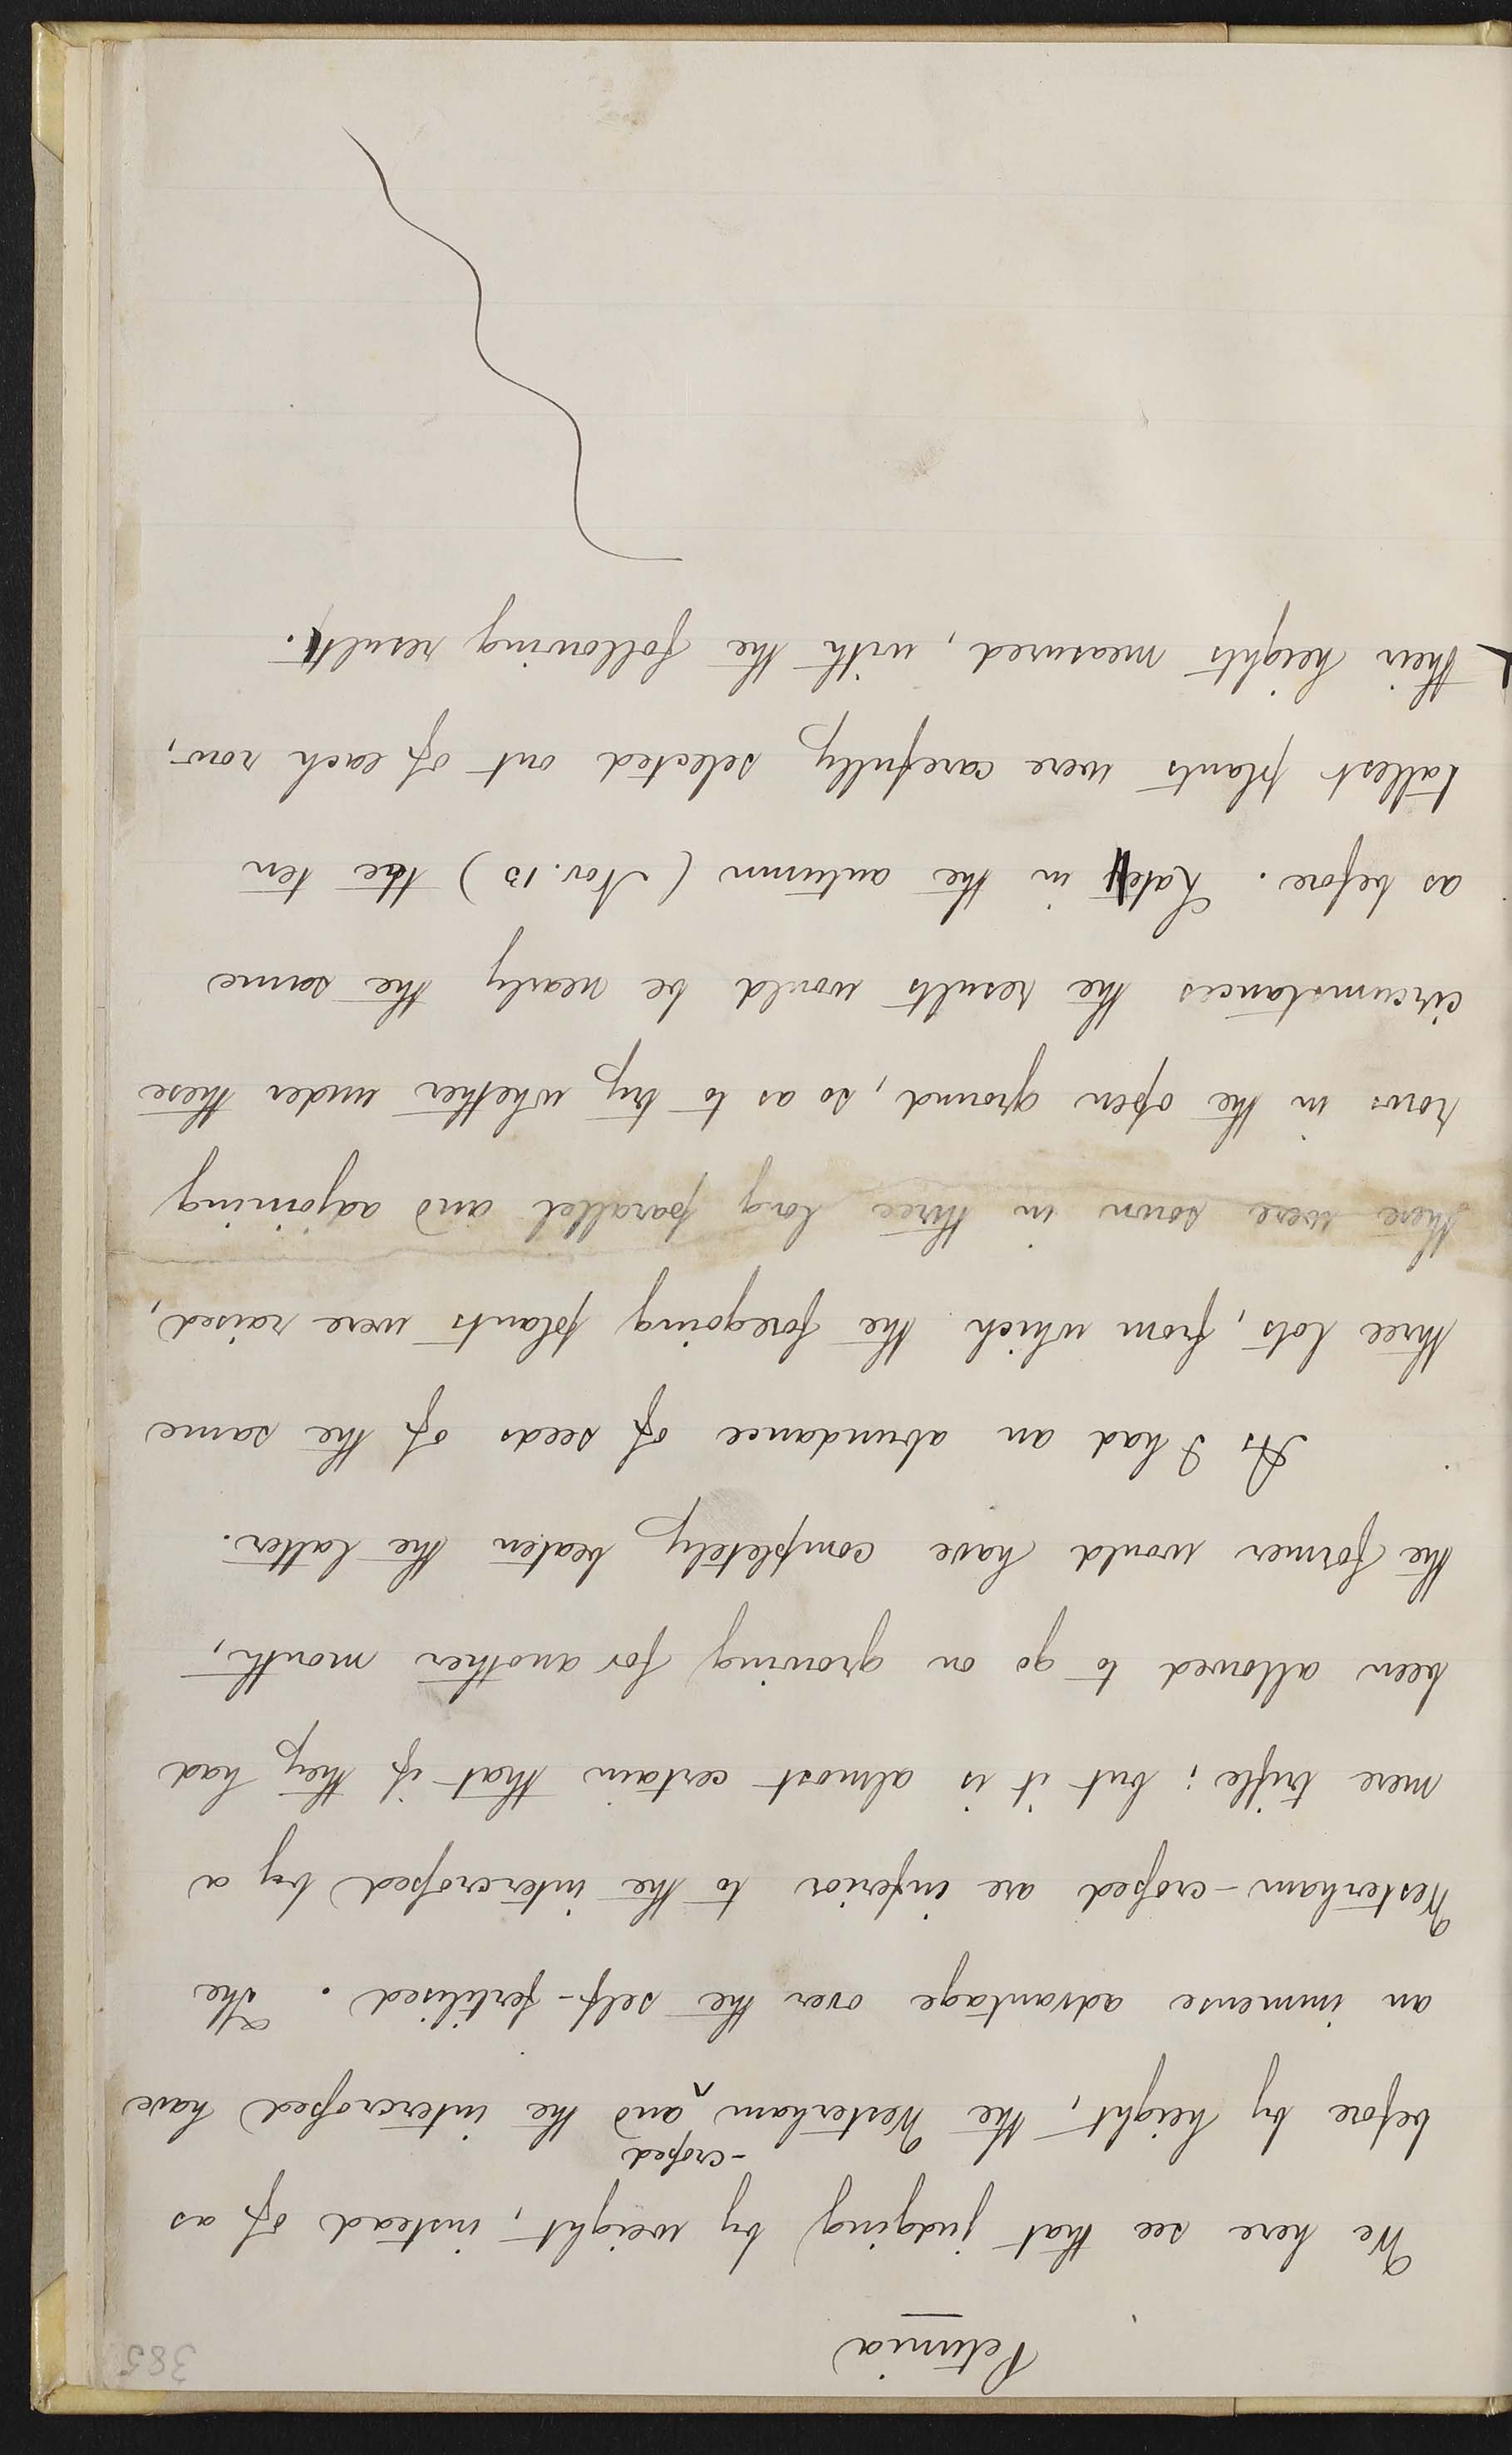 385
Petunia
We here see that judging by weight, instead of as
before by height, the Westerham -crossed and the intercrossed have
an immense advantage over the self-fertilised. The
Westerham-crossed are inferior to the intercrossed by a
mere trifle; but it is almost certain that if they had
been allowed to go on growing for another month,
the former would have completely beaten the latter.
As I had an abundance of seeds of the same
three lots, from which the foregoing plants were raised,
these were sown in three long parallel and adjoining
rows in the open ground, so as to try whether under these
circumstances the results would be nearly the same
as before. Late in the autumn (Nov. 13) the ten
tallest plants were carefully selected out of each row,
their heights measured, with the following result.